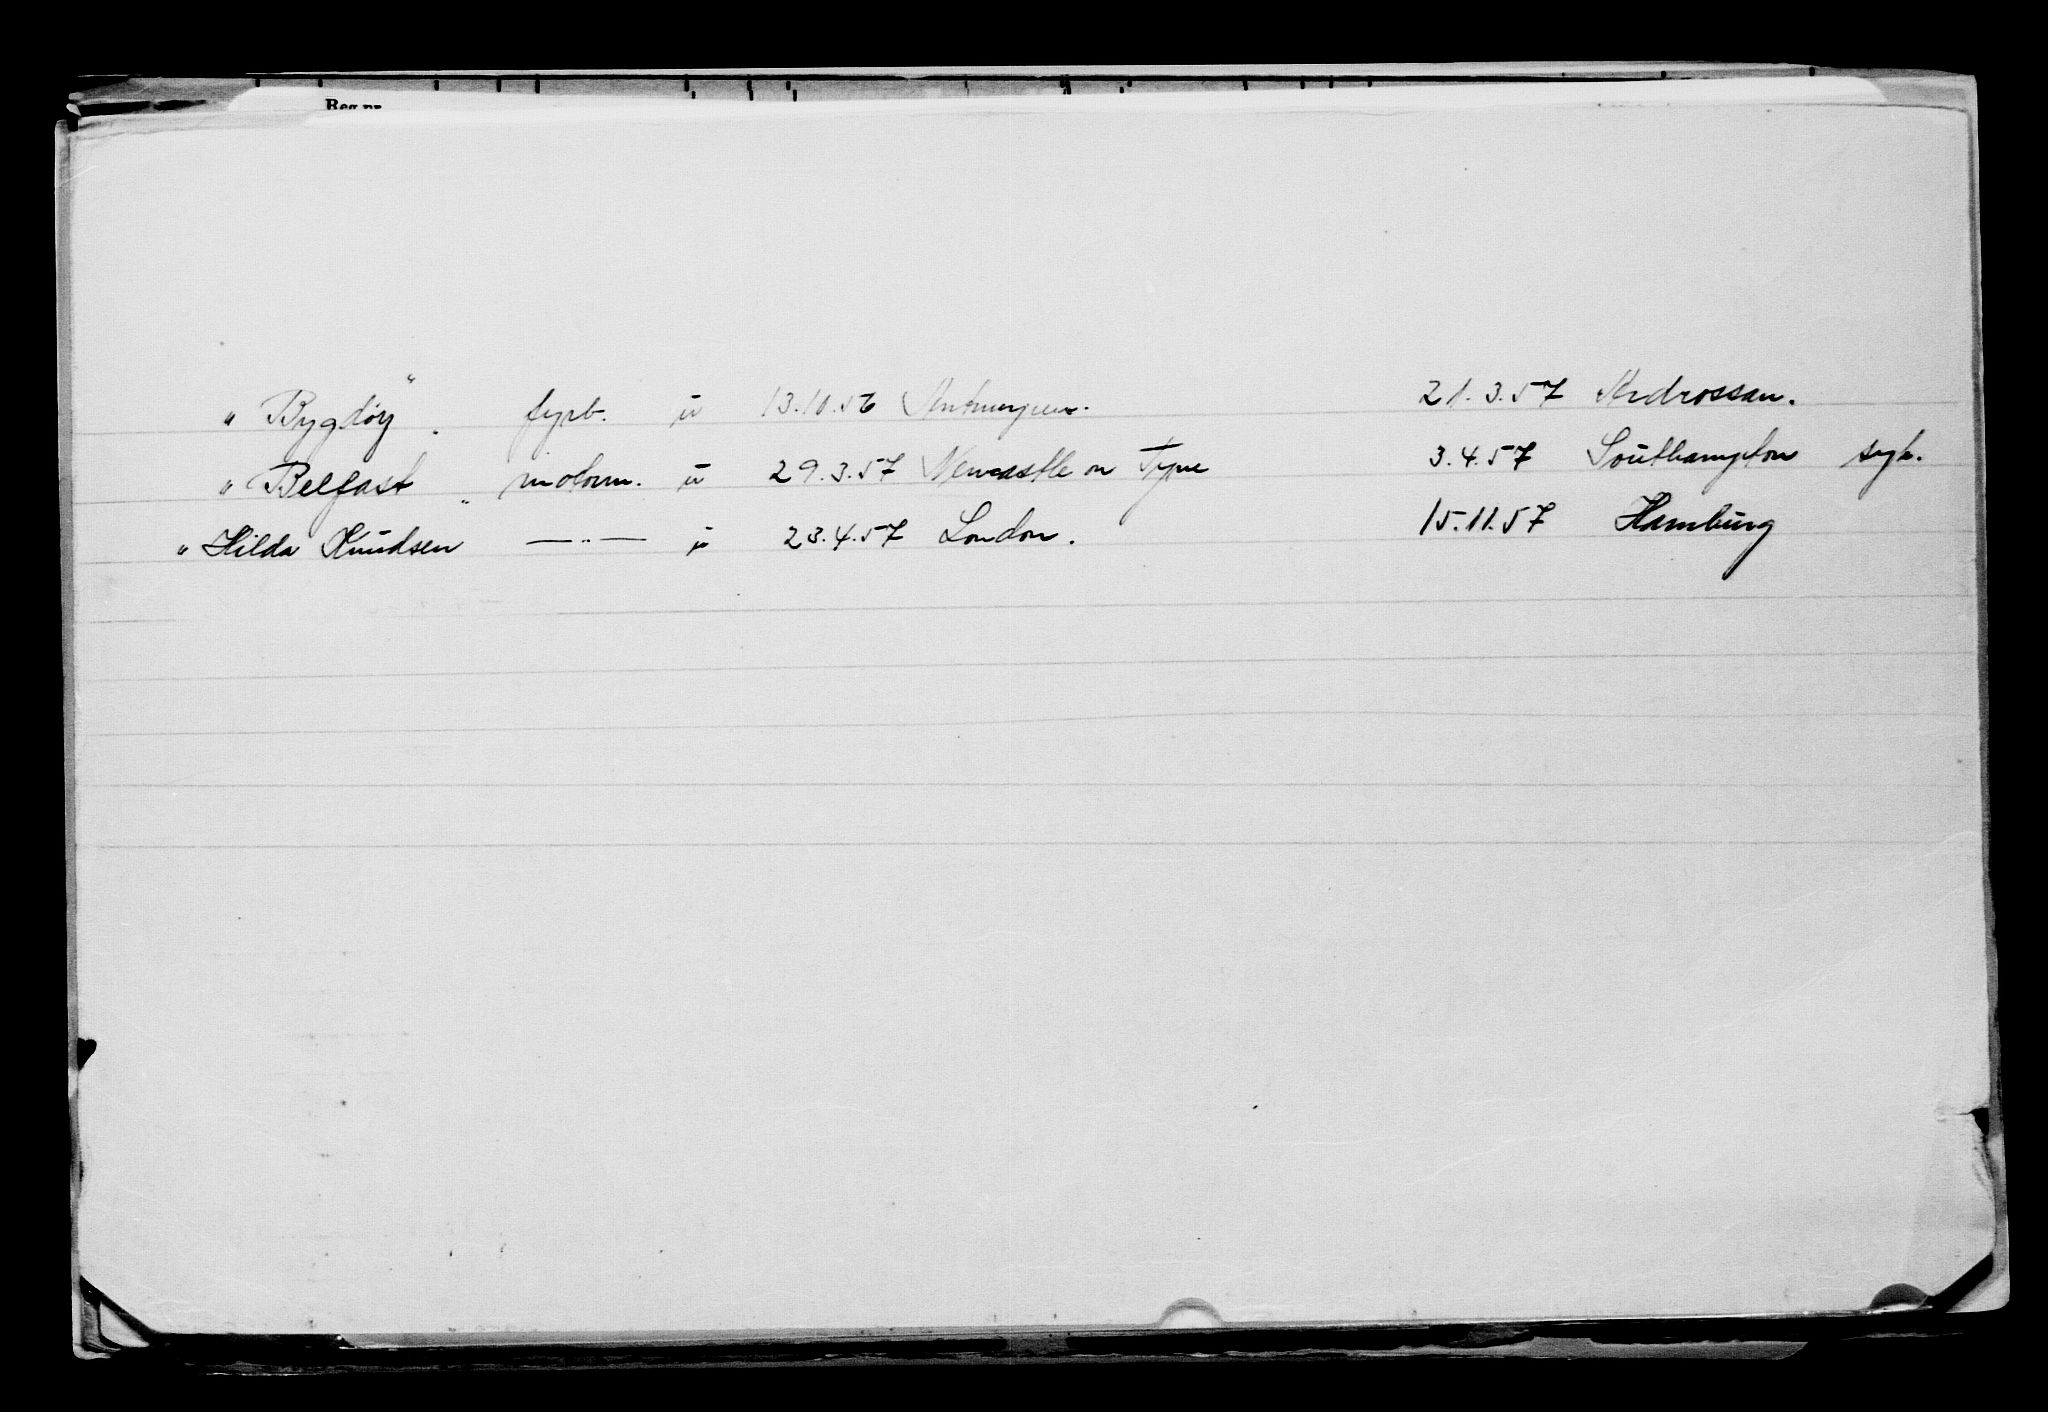 Reg.nr.
"Bygdöy". fyrb. u 13.10.56 Antwerpen. 21.3.57 Ardrossan.
"Belfast" motorm. u 29.3.57 Newcastle on Tyne 3.4.57 Southampton syk.
"Hilda Knudsen —"— u 23.4.57 London. 15.11.57 Hamburg